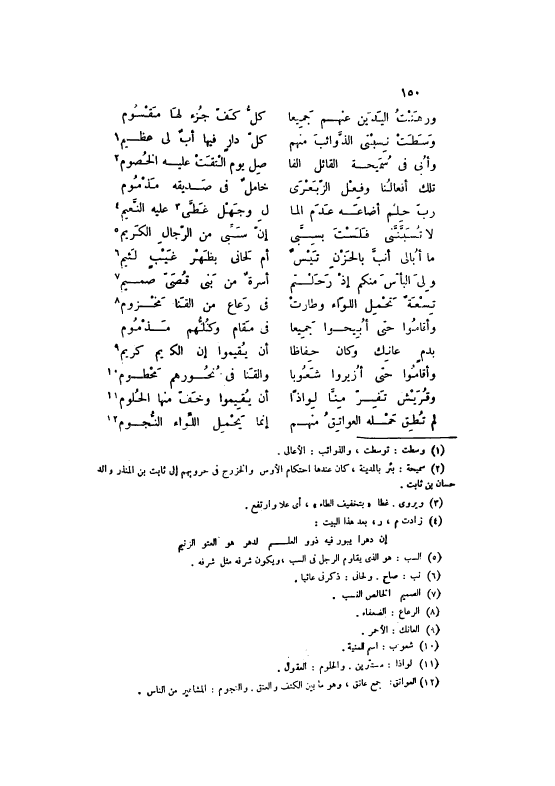 ١٥٠
ورهنتُ اليدين عنهم جميعا كلُّ كفّ جُزء لها مقسوم
وسطت نسبتى الذوائب منهم كلّ دارٍ فيها أبٌ لى عظيم١
وأبى فى سُمَيحة القائل الفا صل يوم التقتْ عليه الخصوم٢
تلك أفعالنا وفِعل الزِّبَعْرَى خاملٌ فى صديقه مذموم
ربَّ حلم أضاعه عدم الما ل وجهل غطَى٣ عليه النَّعيم٤
لا تسبَّنَّنى فلستَ بسِبِّى إنّ سِبِّى من الرجال الكريم٥
ما أبالى أنبَّ بالحَزْن تيسٌ أم لحانى بظهر غيبٍ لئيم٦
ولىَ البأس منكم إذ رحلتم أسرةٌ من بنى قُصَىّ صميم٧
تسعةٌ تحمل اللواء وطارتْ فى رعاع من القنا مخزوم٨
وأقاموا حتى أُبيحوا جميعا فى مقام وكلُّهم مذموم
بدم عانك وكان حِفاظا أن يُقيموا إن الكريم كريم٩
وأقاموا حتى أزيروا شَعُوبا والقنا فى نُحورهم محطوم١٠
وقُريش تفرّ منَّا لِواذًا أن يُقيموا وخفّ منها الحلوم١١
لم تُطِق حمله العواتقُ منهم إنما يَحمل اللِّواء النُّجوم١٢
(١) وسطت : توسطت ، والذوائب : الأعالى .
(٢) سميحة : بئر بالمدينة ، كان عندها احتكام الأوس والخزرج فى حروبهم إلى ثابت بن المنذر والد
حسان بن ثابت .
(٣) ويروى . غطا » بتخفيف الطاء » ، أى علا وارتفع .
(٤) زادت م ، ر ، بعد هذا البيت :
إن دهرا يبور فيه ذوو العلـــم لدهر هو العتو الزنيم
(٥) السب : هو الذى يقاوم الرجل فى السب ، ويكون شرفه مثل شرفه .
(٦) نب : صاح . ولحانى : ذكرنى عائبا .
(٧) الصميم الخالص النسب .
(٨) الرعاع : الضعفاء .
(٩) العانك : الأحمر .
(١٠) شعوب : اسم للمنية .
(١١) لواذا : مستترين . والحلوم : العقول .
(١٢) العواتق: جمع عاتق ، وهو ما بين الكتف والعنق . والنجوم : المشاهير من الناس .